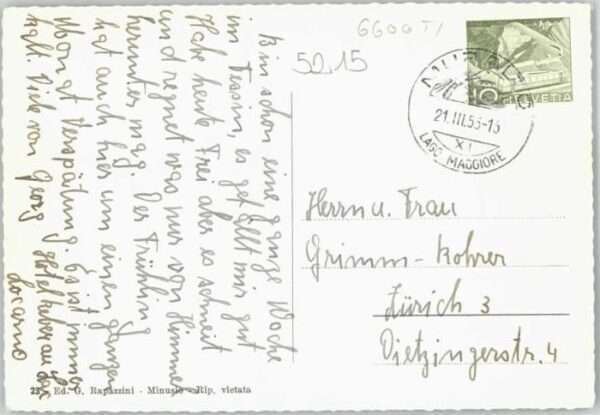 Bin schon eine ganze Woche
im Tessin, es gefällt mir gut
Habe heute frei aber es schneit
und regnet was nur vom Himmel
herunter mag. Der Frühling
hat auch hier um einen ganzen
Monat Verspätung. Es ist immer
kalt. Viele von Georg
Locarno
6600 TI
52.15
HELVETIA
21.III.53-13
XI
LAGO MAGGIORE
Herrn u. Frau
Grimm-Kohrer
Zürich 3
Dietzingerstr. 4
Ed. G. Rapazzini - Minusio - Rip. vietata